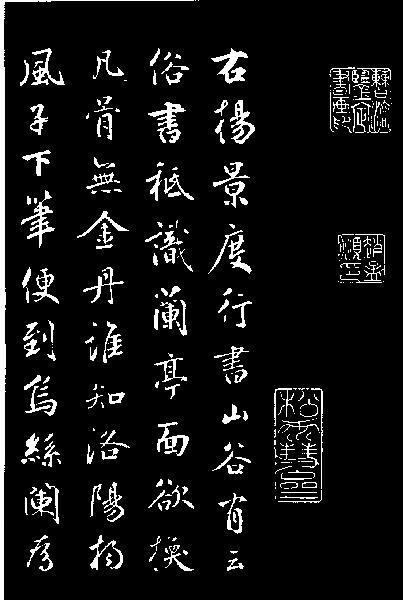 趙孟
頫印
右楊景度行書山谷有云
俗書祗識蘭亭面欲換
凡骨無金丹誰知洛陽楊
風子下筆便到烏絲闌為